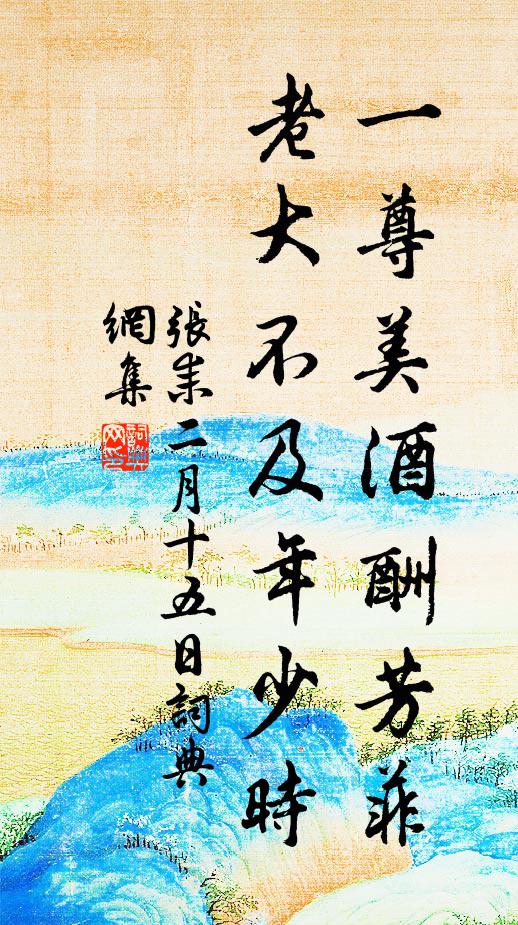 一尊美酒酬芳菲
老大不及年少時
張耒二月十五日詞典
網集